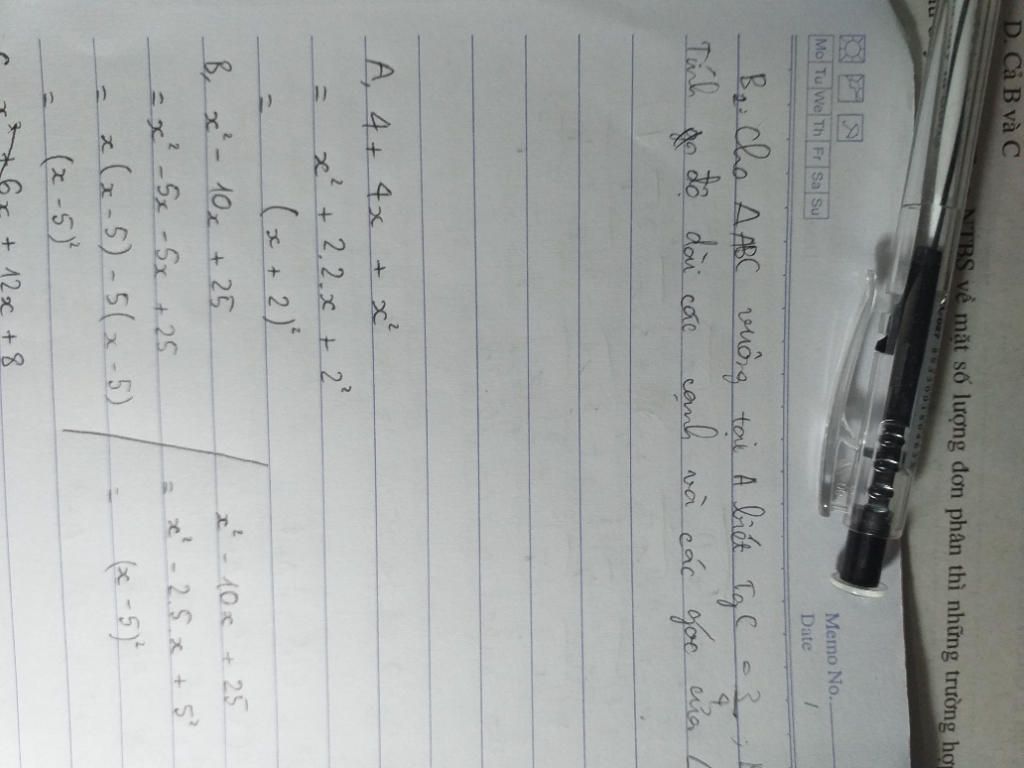 D. Cả B và C
NTBS về mặt số lượng đơn phân thì những trường hợ
Memo No.
Mo Tu We Th Fr Sa Su
Date /
B2, Cho ΔABC vuông tại A biết TgC = 3/4 ;
Tính độ dài các cạnh và các góc của
A, 4 + 4x + x²
= x² + 2.2.x + 2²
= (x + 2)²
B, x² - 10x + 25
= x² - 5x - 5x + 25
= x(x - 5) - 5(x - 5)
= (x - 5)²
x² - 10x + 25
= x² - 2.5x + 5²
= (x - 5)²
6x + 12x + 8